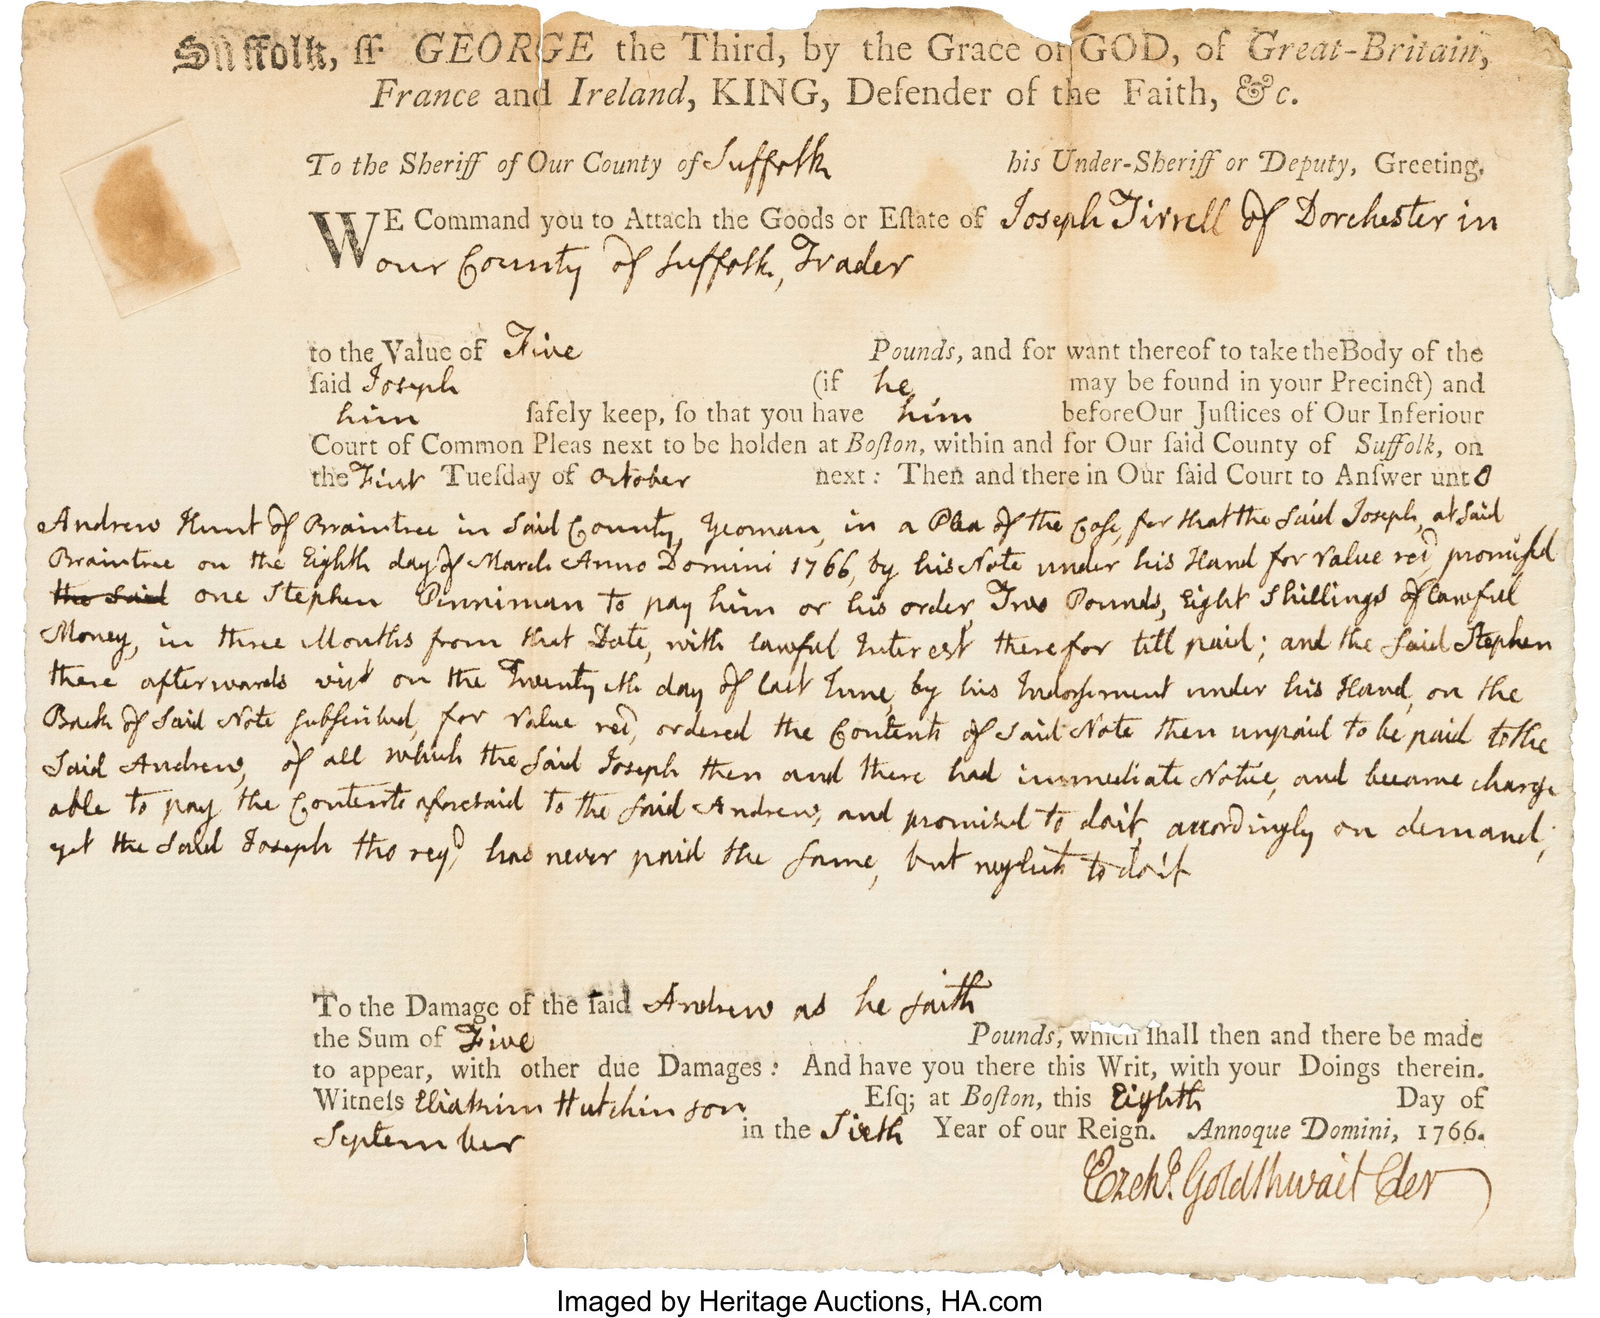 Suffolk, ſſ. GEORGE the Third, by the Grace of GOD, of Great-Britain,
France and Ireland, KING, Defender of the Faith, &c.
To the Sheriff of Our County of Suffolk his Under-Sheriff or Deputy, Greeting.
WE Command you to Attach the Goods or Eſtate of Joseph Tirrell of Dorchester in
our County of Suffolk, Trader
to the Value of Five Pounds, and for want thereof to take the Body of the
ſaid Joseph (if he may be found in your Precinct) and
him ſafely keep, ſo that you have him before Our Juſtices of Our Inferiour
Court of Common Pleas next to be holden at Boſton, within and for Our ſaid County of Suffolk, on
the First Tueſday of October next: Then and there in Our ſaid Court to Anſwer unto
Andrew Hunt of Braintree in said County, Yeoman, in a Plea of the Case, for that the said Joseph, at said
Braintree on the Eighth day of March Anno Domini 1766, by his Note under his Hand for value recd promised
the said one Stephen Penniman to pay him or his order, Two Pounds, Eight Shillings of lawful
Money, in three Months from that Date, with lawful Interest therefor till paid; and the said Stephen
there afterwards vizt on the Twentyeth day of last June, by his Indorsement under his Hand, on the
Back of said Note subscribed, for value recd, ordered the Contents of said Note then unpaid to be paid to the
said Andrew, of all which the said Joseph then and there had immediate Notice, and became charge
able to pay the Contents aforesaid to the said Andrew, and promised to do it accordingly on demand;
yet the said Joseph tho reqd has never paid the same, but neglects to do it
To the Damage of the ſaid Andrew as he saith
the Sum of Five Pounds, which ſhall then and there be made
to appear, with other due Damages: And have you there this Writ, with your Doings therein.
Witneſs Eliakim Hutchinson Eſq; at Boſton, this Eighth Day of
September in the Sixth Year of our Reign. Annoque Domini, 1766.
Ezekl. Goldthwait Cler
Imaged by Heritage Auctions, HA.com